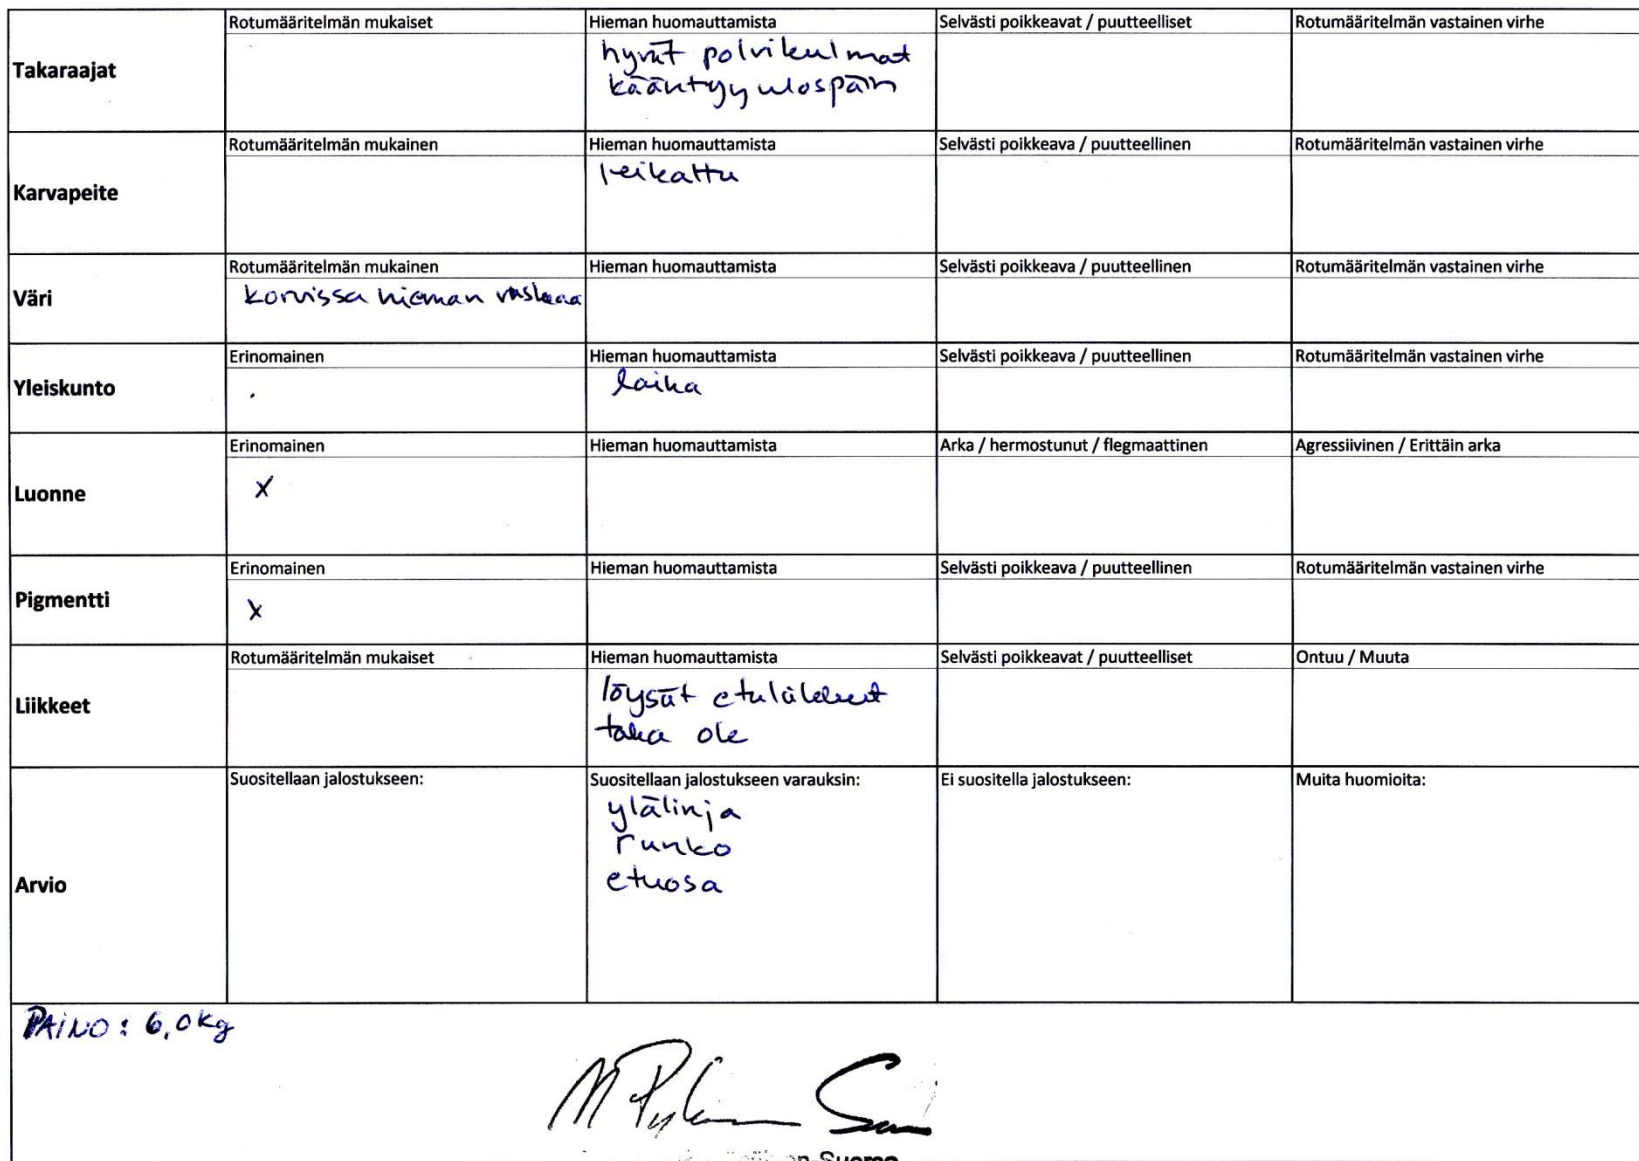 Takaraajat
Rotumääritelmän mukaiset
Hieman huomauttamista
hyvät polvikulmat
kääntyy ulospäin
Selvästi poikkeavat / puutteelliset
Rotumääritelmän vastainen virhe
Karvapeite
Rotumääritelmän mukainen
Hieman huomauttamista
leikattu
Selvästi poikkeava / puutteellinen
Rotumääritelmän vastainen virhe
Väri
Rotumääritelmän mukainen
korvissa hieman ruskeaa
Hieman huomauttamista
Selvästi poikkeava / puutteellinen
Rotumääritelmän vastainen virhe
Yleiskunto
Erinomainen
Hieman huomauttamista
laiha
Selvästi poikkeava / puutteellinen
Rotumääritelmän vastainen virhe
Luonne
Erinomainen
X
Hieman huomauttamista
Arka / hermostunut / flegmaattinen
Agressiivinen / Erittäin arka
Pigmentti
Erinomainen
X
Hieman huomauttamista
Selvästi poikkeava / puutteellinen
Rotumääritelmän vastainen virhe
Liikkeet
Rotumääritelmän mukaiset
Hieman huomauttamista
löysät etuliikkeet
taka ok
Selvästi poikkeavat / puutteelliset
Ontuu / Muuta
Arvio
Suositellaan jalostukseen:
Suositellaan jalostukseen varauksin:
ylälinja
runko
etuosa
Ei suositella jalostukseen:
Muita huomioita:
PAINO: 6,0kg